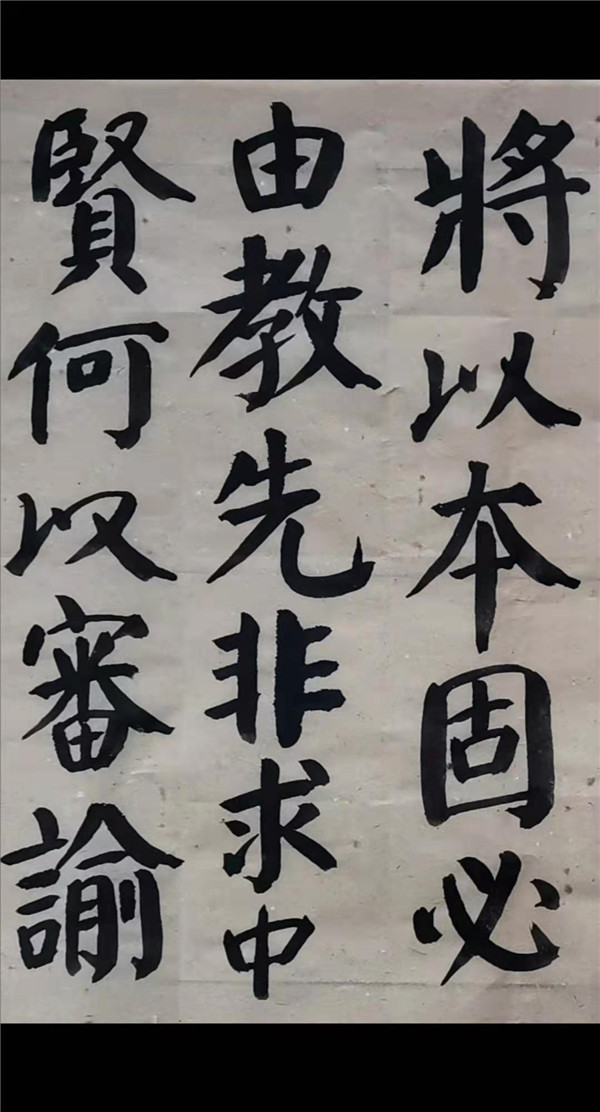 將以本固必
由教先非求中
賢何以審諭